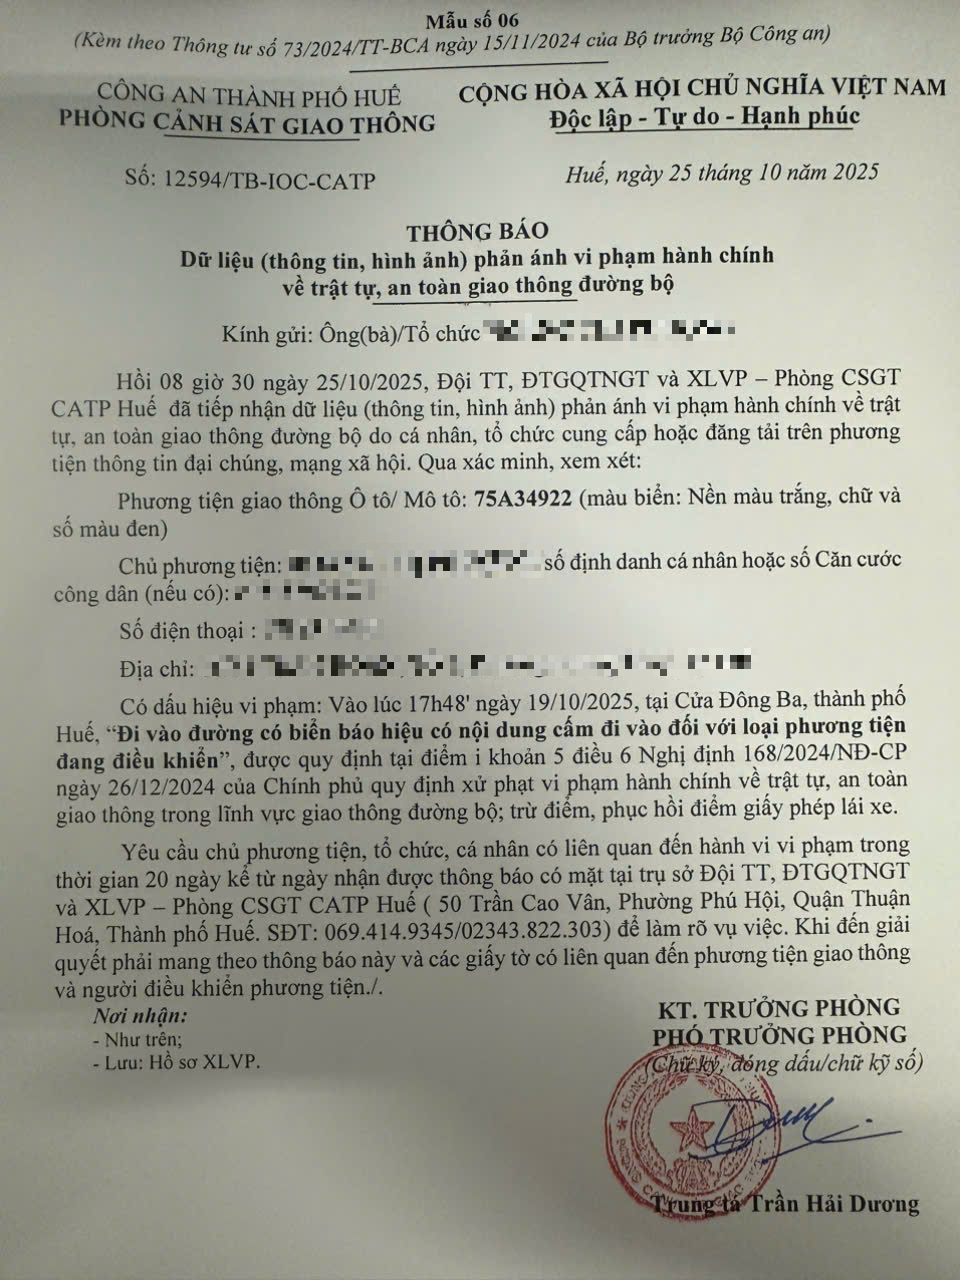 Mẫu số 06
(Kèm theo Thông tư số 73/2024/TT-BCA ngày 15/11/2024 của Bộ trưởng Bộ Công an)
CÔNG AN THÀNH PHỐ HUẾ
PHÒNG CẢNH SÁT GIAO THÔNG
CỘNG HÒA XÃ HỘI CHỦ NGHĨA VIỆT NAM
Độc lập - Tự do - Hạnh phúc
Số: 12594/TB-IOC-CATP
Huế, ngày 25 tháng 10 năm 2025
THÔNG BÁO
Dữ liệu (thông tin, hình ảnh) phản ánh vi phạm hành chính
về trật tự, an toàn giao thông đường bộ
Kính gửi: Ông(bà)/Tổ chức
Hồi 08 giờ 30 ngày 25/10/2025, Đội TT, ĐTGQTNGT và XLVP – Phòng CSGT
CATP Huế đã tiếp nhận dữ liệu (thông tin, hình ảnh) phản ánh vi phạm hành chính về trật
tự, an toàn giao thông đường bộ do cá nhân, tổ chức cung cấp hoặc đăng tải trên phương
tiện thông tin đại chúng, mạng xã hội. Qua xác minh, xem xét:
Phương tiện giao thông Ô tô/ Mô tô: 75A34922 (màu biển: Nền màu trắng, chữ và
số màu đen)
Chủ phương tiện: số định danh cá nhân hoặc số Căn cước
công dân (nếu có):
Số điện thoại :
Địa chỉ:
Có dấu hiệu vi phạm: Vào lúc 17h48' ngày 19/10/2025, tại Cửa Đông Ba, thành phố
Huế, “Đi vào đường có biển báo hiệu có nội dung cấm đi vào đối với loại phương tiện
đang điều khiển”, được quy định tại điểm i khoản 5 điều 6 Nghị định 168/2024/NĐ-CP
ngày 26/12/2024 của Chính phủ quy định xử phạt vi phạm hành chính về trật tự, an toàn
giao thông trong lĩnh vực giao thông đường bộ; trừ điểm, phục hồi điểm giấy phép lái xe.
Yêu cầu chủ phương tiện, tổ chức, cá nhân có liên quan đến hành vi vi phạm trong
thời gian 20 ngày kể từ ngày nhận được thông báo có mặt tại trụ sở Đội TT, ĐTGQTNGT
và XLVP – Phòng CSGT CATP Huế ( 50 Trần Cao Vân, Phường Phú Hội, Quận Thuận
Hoá, Thành phố Huế. SĐT: 069.414.9345/02343.822.303) để làm rõ vụ việc. Khi đến giải
quyết phải mang theo thông báo này và các giấy tờ có liên quan đến phương tiện giao thông
và người điều khiển phương tiện./.
Nơi nhận:
- Như trên;
- Lưu: Hồ sơ XLVP.
KT. TRƯỞNG PHÒNG
PHÓ TRƯỞNG PHÒNG
(Chữ ký, đóng dấu/chữ ký số)
Trung tá Trần Hải Dương